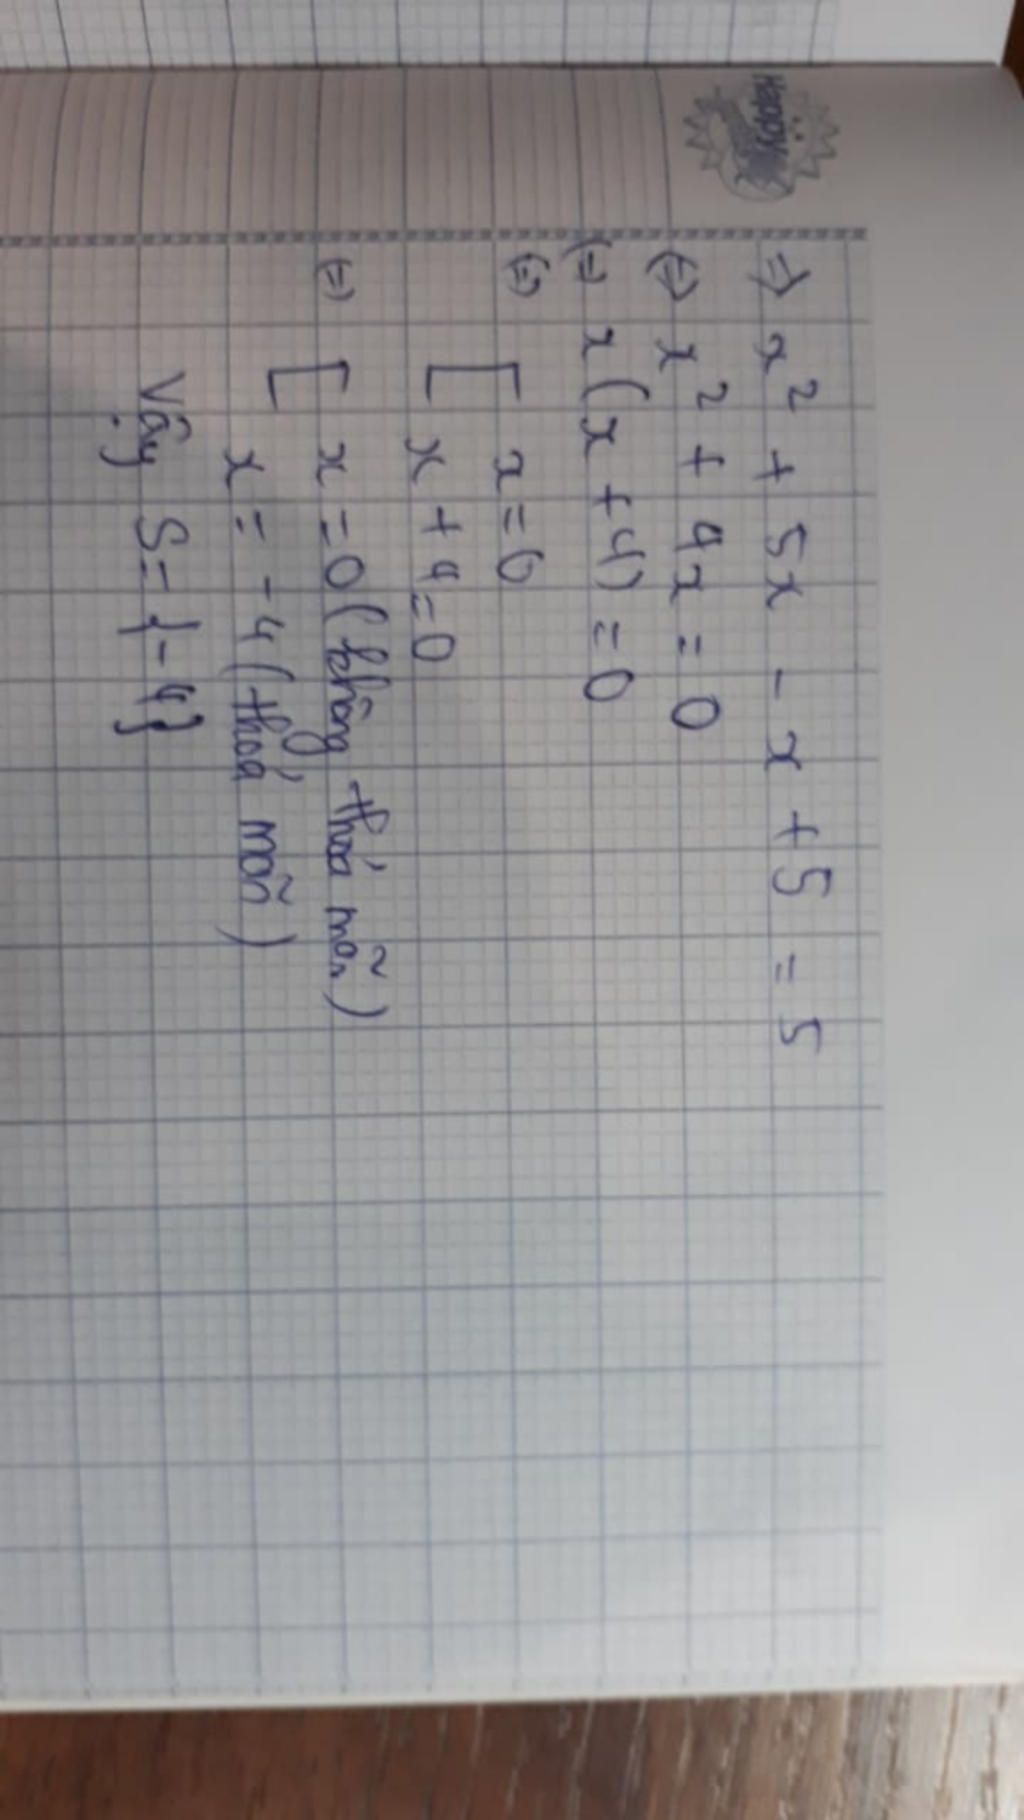 Happy
=> x² + 5x - x + 5 = 5
(=) x² + 4x = 0
(=) x(x + 4) = 0
(=) [ x = 0
[ x + 4 = 0
(=) [ x = 0 (không thoả mãn)
[ x = -4 (thoả mãn)
Vậy S = {-4}